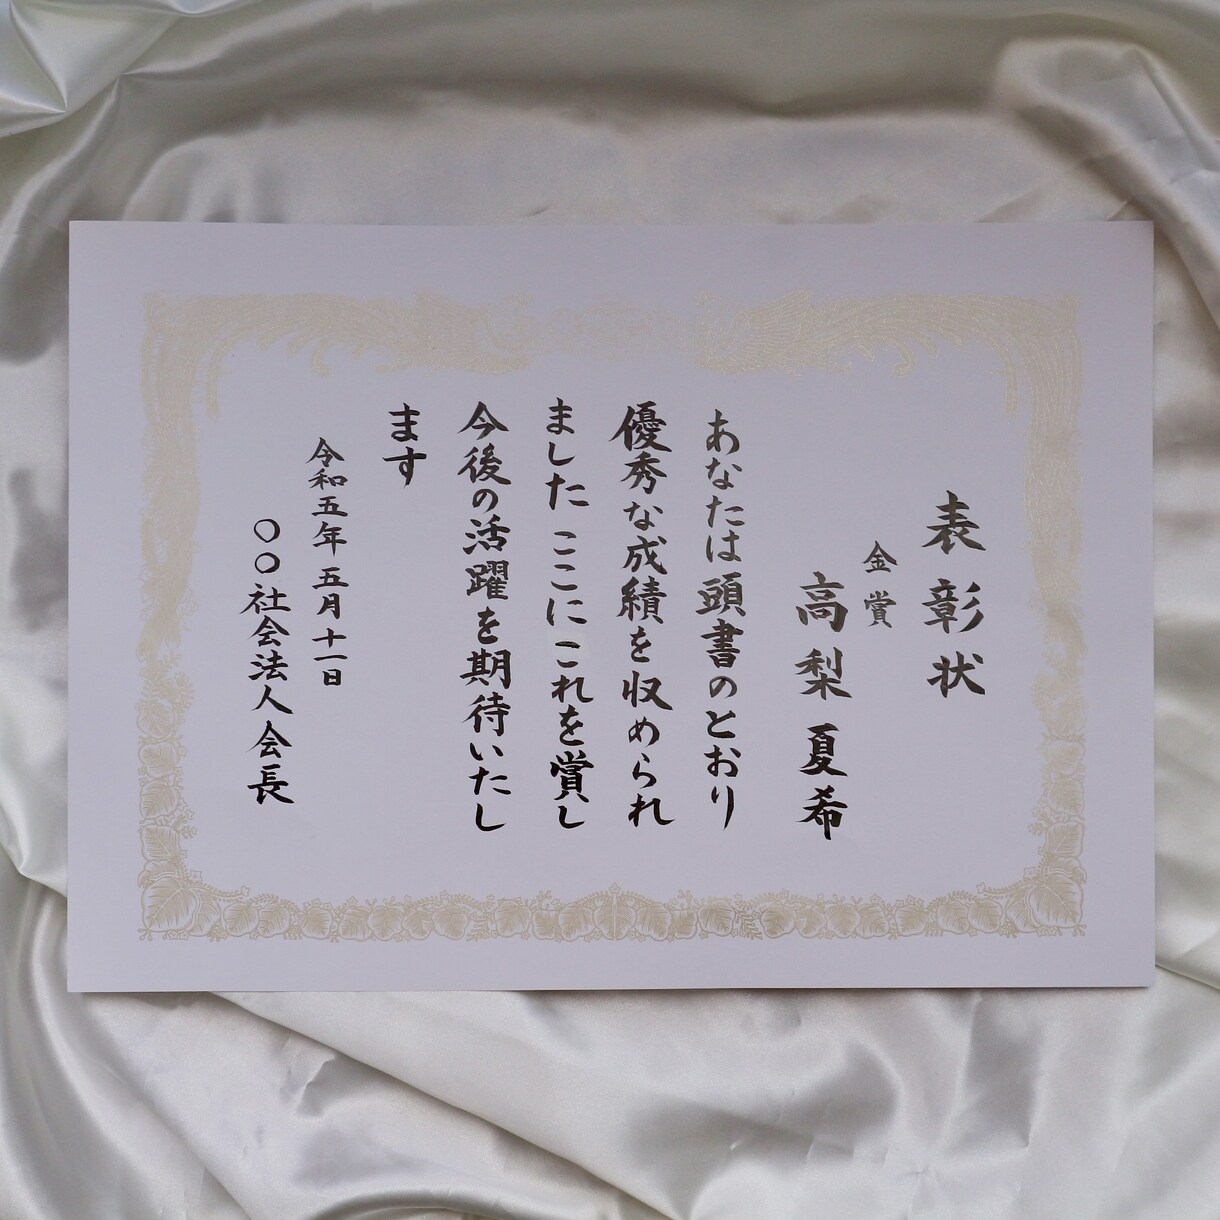 表彰状
金賞
高梨夏希
あなたは頭書のとおり
優秀な成績を収められ
ました ここにこれを賞し
今後の活躍を期待いたし
ます
令和五年 五月十一日
〇〇社会法人 会長